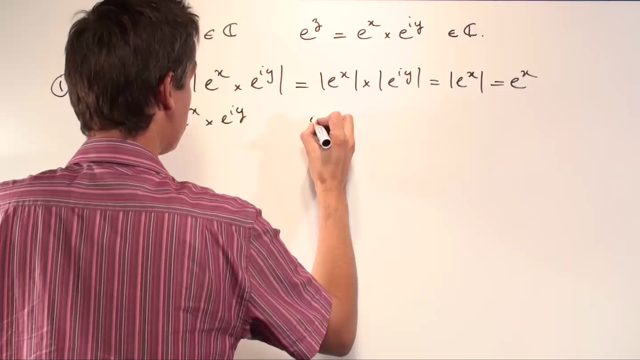 ∈ ℂ e^z = e^x × e^{iy} ∈ ℂ.
① |e^x × e^{iy}| = |e^x| × |e^{iy}| = |e^x| = e^x
^x × e^{iy}